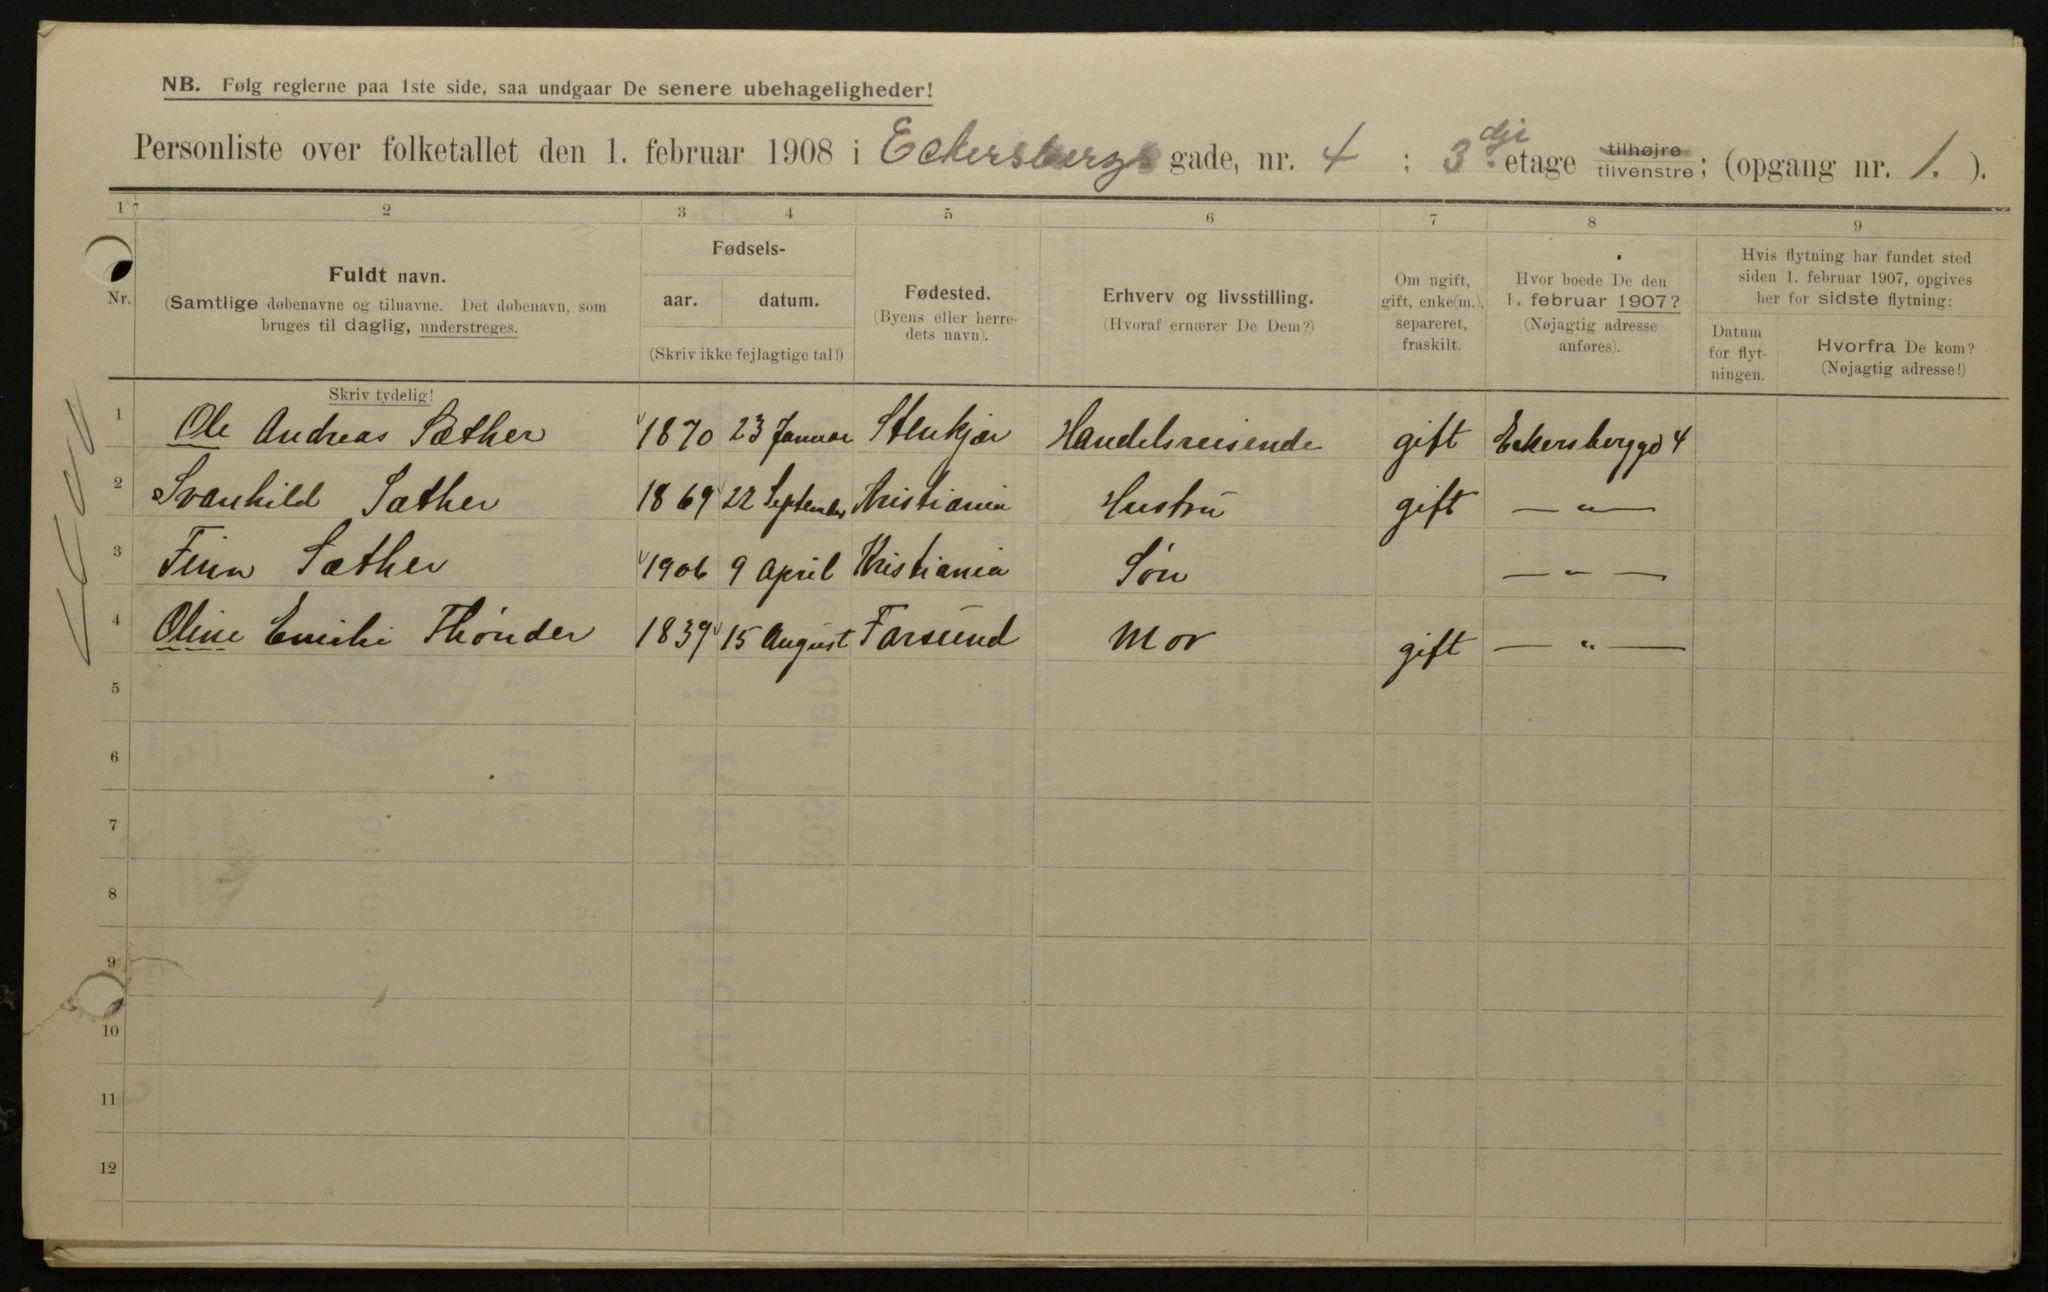 NB. Følg reglerne paa 1ste side, saa undgaar De senere ubehageligheder!
Personliste over folketallet den 1. februar 1908 i Eckersbergs gade, nr. 4 ; 3dje etage tilhøjre tilvenstre; (opgang nr. 1. ).
1 2 3 4 5 6 7 8 9
Nr.
Fuldt navn.
(Samtlige døbenavne og tilnavne. Det døbenavn, som
bruges til daglig, understreges.
Skriv tydelig!
Fødsels-
aar. datum.
(Skriv ikke fejlagtige tal!)
Fødested.
(Byens eller herre-
dets navn).
Erhverv og livsstilling.
(Hvoraf ernærer De Dem?)
Om ugift,
gift, enke(m.),
separeret,
fraskilt.
Hvor boede De den
1. februar 1907?
(Nøjagtig adresse
anføres).
Hvis flytning har fundet sted
siden 1. februar 1907, opgives
her for sidste flytning:
Datum
for flyt-
ningen.
Hvorfra De kom?
(Nøjagtig adresse!)
1 Ole Andreas Sæther 1870 23 Januar Stenkjær Handelsreisende gift Eckersberggd 4
2 Svanhild Sæther 1869 22 September Kristiania Hustru gift — " —
3 Finn Sæther 1906 9 April Kristiania Søn — " —
4 Oline Emilie Thønder 1839 15 August Farsund Mor gift — " —
5
6
7
8
9
10
11
12